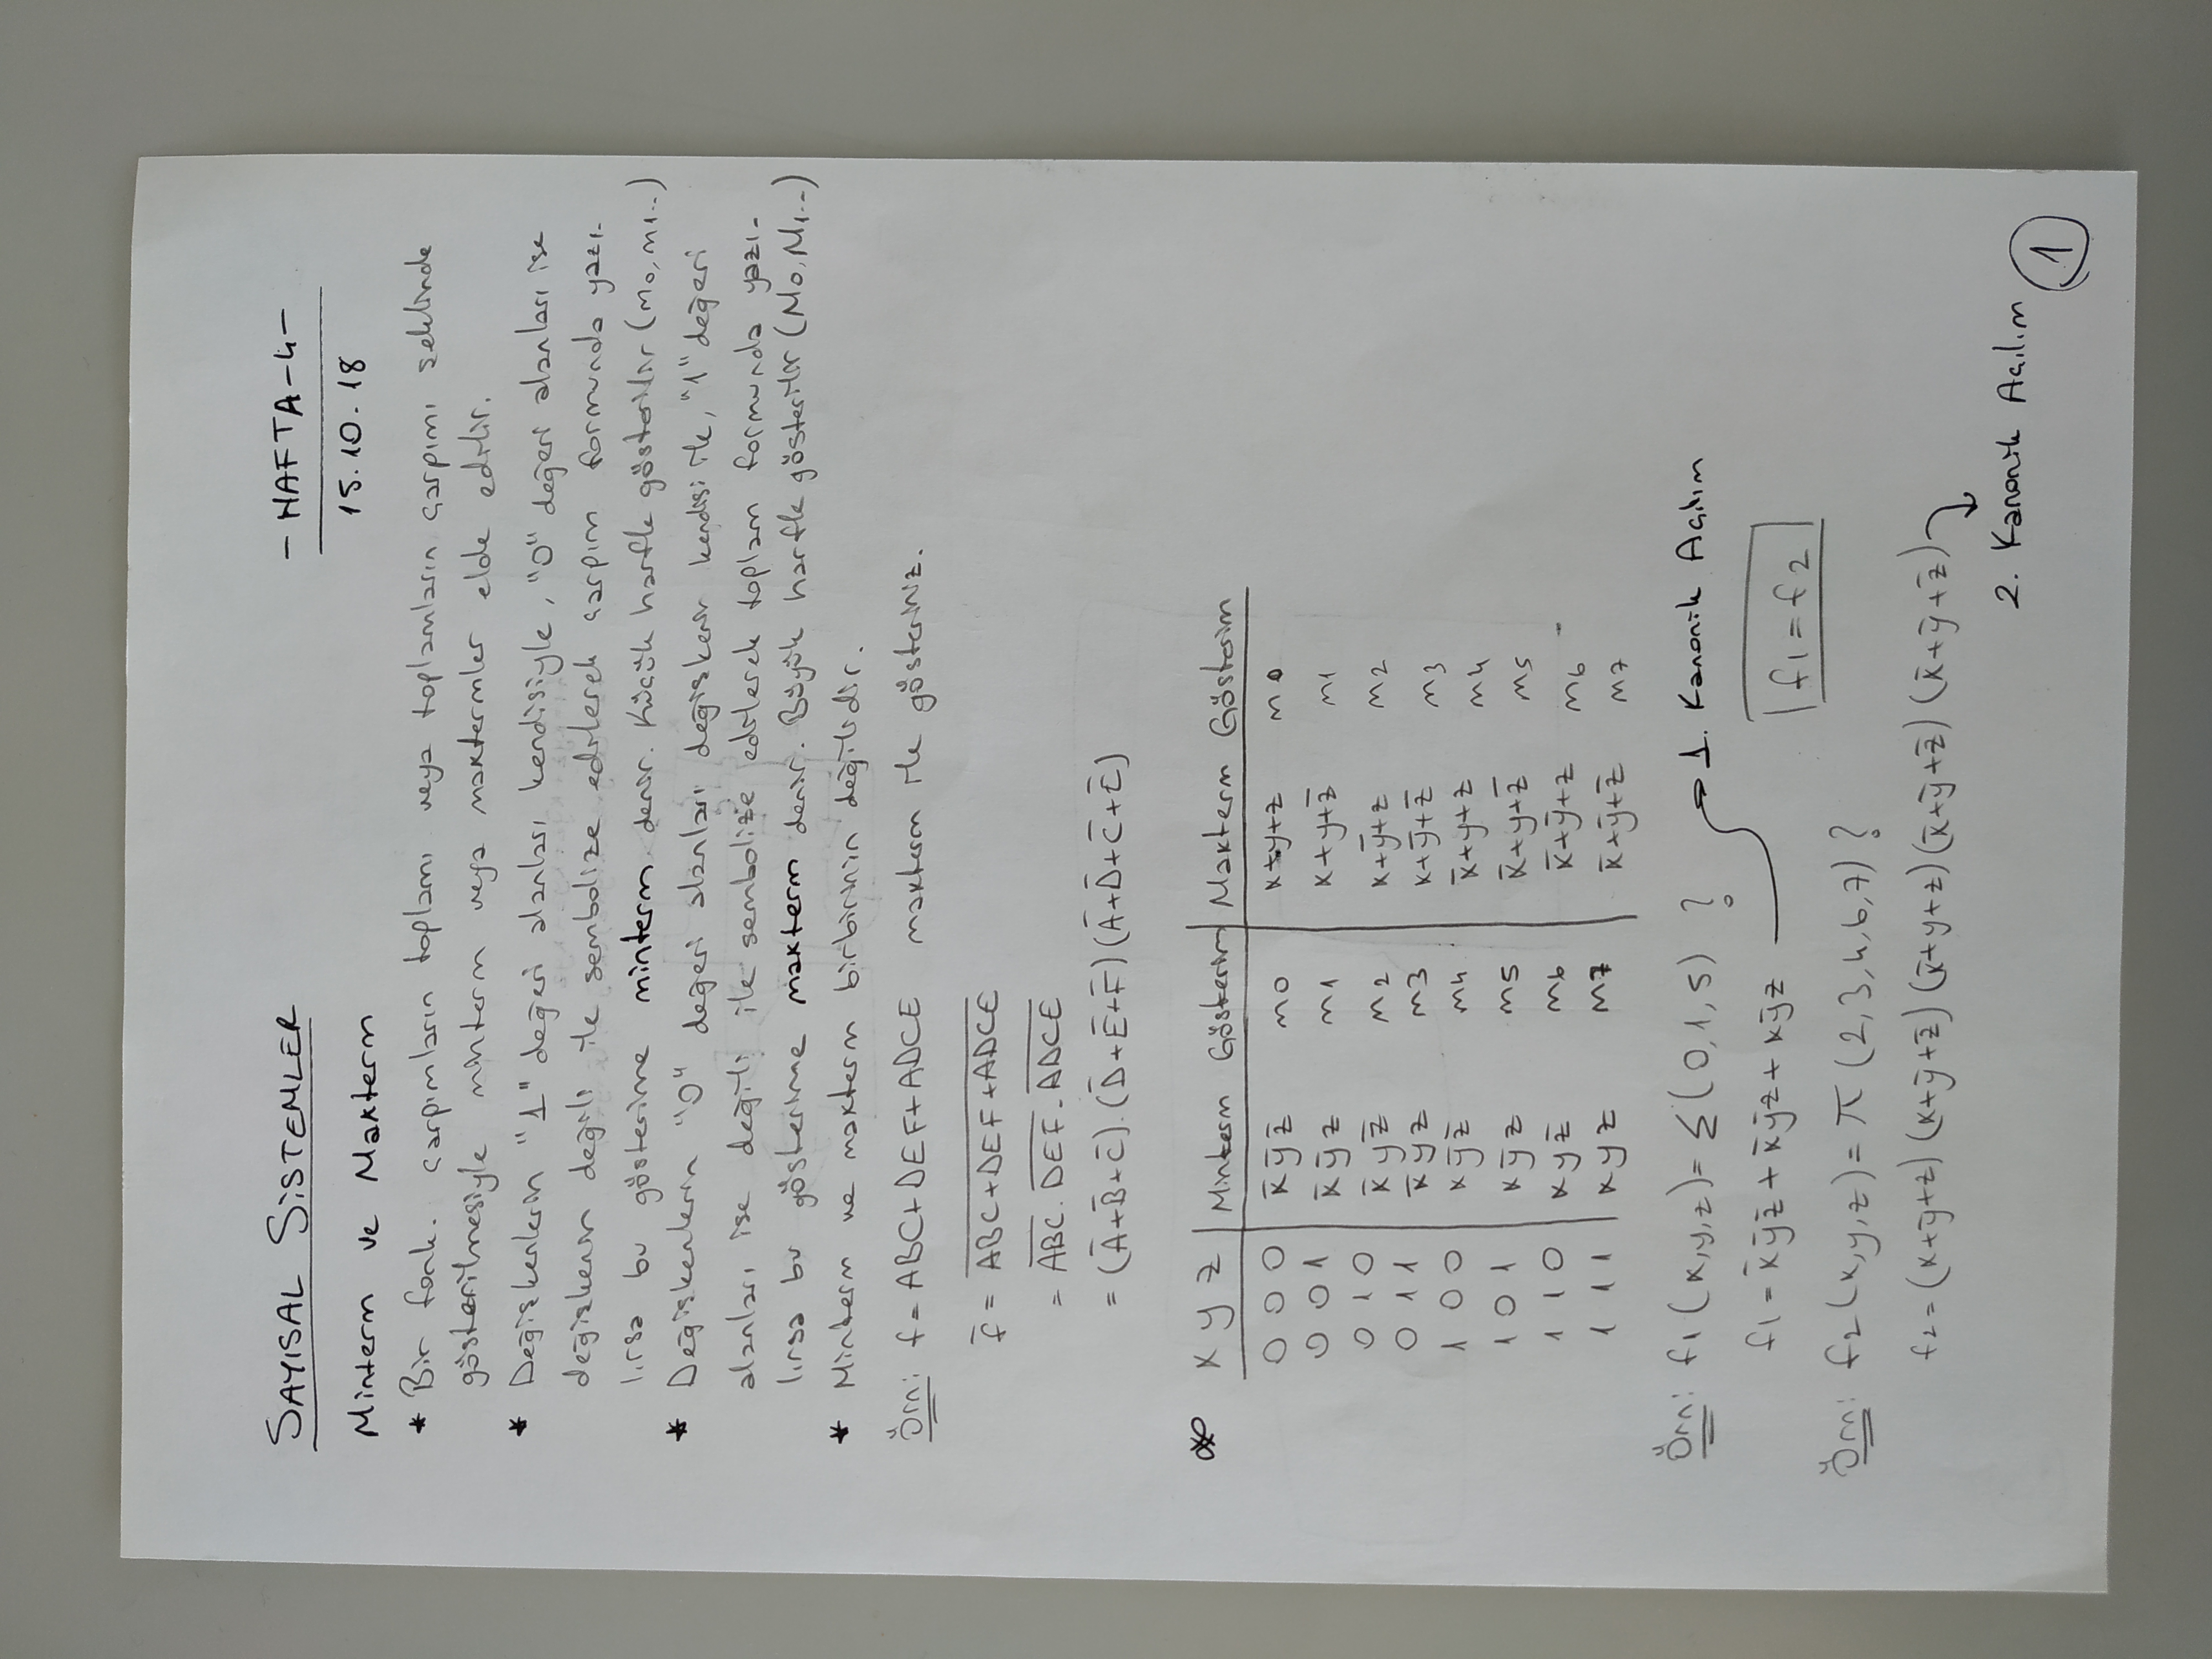 SAYISAL SİSTEMLER
- HAFTA-4-
15.10.18
Minterm ve Makterm
* Bir fonk. çarpımların toplamı veya toplamların çarpımı şeklinde
gösterilmesiyle minterm veya maxtermler elde edilir.
* Değişkenlerin "1" değeri alanları kendisiyle, "0" değeri alanları ise
değişkenin değili ile sembolize edilerek çarpım formunda yazı-
lırsa bu gösterime minterm denir. Küçük harfle gösterilir (m0, m1..)
* Değişkenlerin "0" değeri alanları değişkenin kendisi ile, "1" değeri
alanları ise değili ile sembolize edilerek toplam formunda yazı-
lırsa bu gösterime maxterm denir. Büyük harfle gösterilir (M0, M1..)
* Minterm ve maxterm birbirinin değilidir.
Örn: f = ABC+DEF+ADCE maxterm ile gösteriniz.
f̅ = A̅B̅C̅+̅D̅E̅F̅+̅A̅D̅C̅E̅
= A̅B̅C̅ . D̅E̅F̅ . A̅D̅C̅E̅
= (A̅+B̅+C̅).(D̅+E̅+F̅)(A̅+D̅+C̅+E̅)
x y z Minterm Gösterim Maxterm Gösterim
0 0 0 x̅y̅z̅ m0 x+y+z m0
0 0 1 x̅y̅z m1 x+y+z̅ m1
0 1 0 x̅yz̅ m2 x+y̅+z m2
0 1 1 x̅yz m3 x+y̅+z̅ m3
1 0 0 xy̅z̅ m4 x̅+y+z m4
1 0 1 xy̅z m5 x̅+y+z̅ m5
1 1 0 xyz̅ m6 x̅+y̅+z m6
1 1 1 xyz m7 x̅+y̅+z̅ m7
Örn: f1(x,y,z)= Σ(0,1,5) ?
→ 1. Kanonik Açılım
f1 = x̅y̅z̅ + x̅y̅z + xy̅z
f1 = f2
Örn: f2(x,y,z)= π (2,3,4,6,7) ?
f2 = (x+y̅+z) (x+y̅+z̅) (x̅+y+z) (x̅+y̅+z̅) (x̅+y̅+z̅)
2. Kanonik Açılım
1